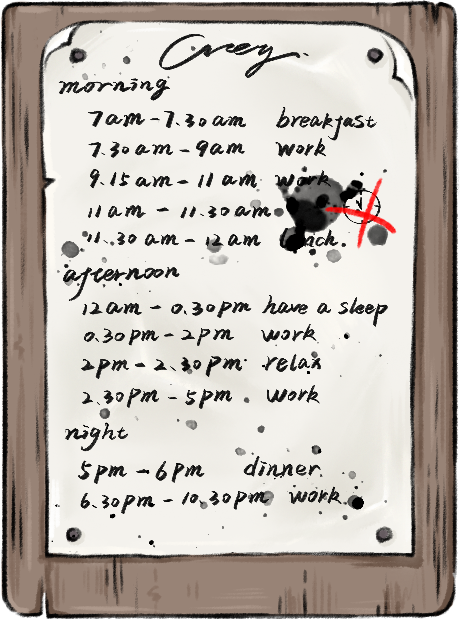 morning
7am-7.30am breakfast
7.30am-9am work
9.15am-11am work
11am-11.30am
11.30am-12am
afternoon
12am-0.30pm have a sleep
0.30pm-2pm work
2pm-2.30pm relax
2.30pm-5pm work
night
5pm-6pm dinner
6.30pm-10.30pm work